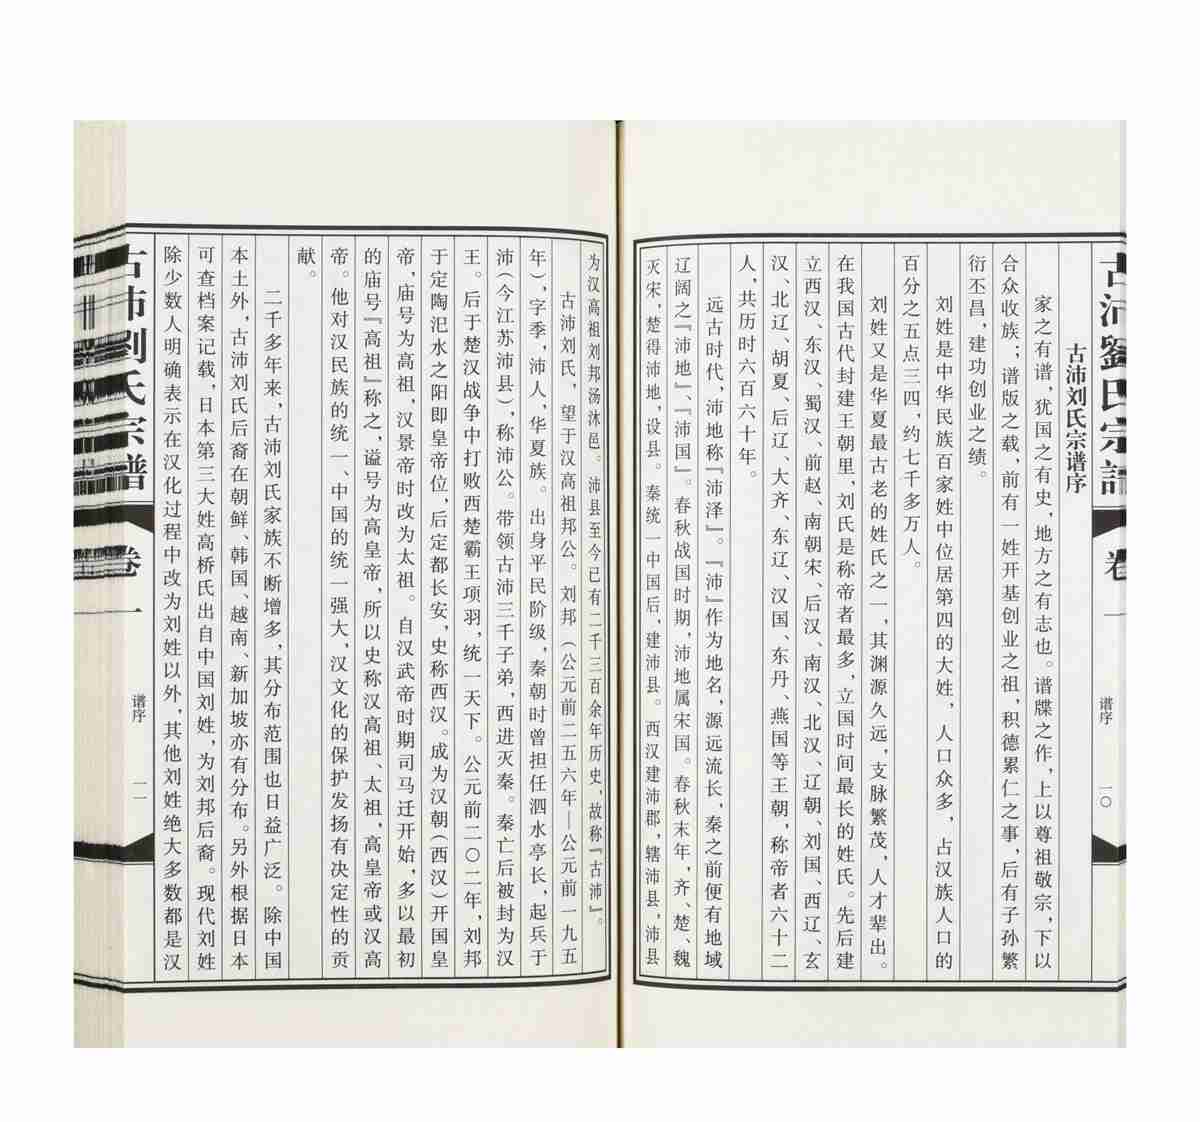 古沛刘氏宗谱序
家之有谱，犹国之有史，地方之有志也。谱牒之作，上以尊祖敬宗，下以
合众收族；谱版之载，前有一姓开基创业之祖，积德累仁之事，后有子孙繁
衍丕昌，建功创业之绩。
刘姓是中华民族百家姓中位居第四的大姓，人口众多，占汉族人口的
百分之五点三四，约七千多万人。
刘姓又是华夏最古老的姓氏之一，其渊源久远，支脉繁茂，人才辈出。
在我国古代封建王朝里，刘氏是称帝者最多，立国时间最长的姓氏。先后建
立西汉、东汉、蜀汉、前赵、南朝宋、后汉、南汉、北汉、辽朝、刘国、西辽、玄
汉、北辽、胡夏、后辽、大齐、东辽、汉国、东丹、燕国等王朝，称帝者六十二
人，共历时六百六十年。
远古时代，沛地称『沛泽』。『沛』作为地名，源远流长，秦之前便有地域
辽阔之『沛地』、『沛国』。春秋战国时期，沛地属宋国。春秋末年，齐、楚、魏
灭宋，楚得沛地，设县。秦统一中国后，建沛县。西汉建沛郡，辖沛县，沛县
古沛劉氏宗譜
卷一
谱序
一〇
为汉高祖刘邦汤沐邑。沛县至今已有二千三百余年历史，故称『古沛』。
古沛刘氏，望于汉高祖邦公。刘邦（公元前二五六年—公元前一九五
年），字季，沛人，华夏族。出身平民阶级，秦朝时曾担任泗水亭长，起兵于
沛（今江苏沛县），称沛公。带领古沛三千子弟，西进灭秦。秦亡后被封为汉
王。后于楚汉战争中打败西楚霸王项羽，统一天下。公元前二〇二年，刘邦
于定陶汜水之阳即皇帝位，后定都长安，史称西汉。成为汉朝（西汉）开国皇
帝，庙号为高祖，汉景帝时改为太祖。自汉武帝时期司马迁开始，多以最初
的庙号『高祖』称之，谥号为高皇帝，所以史称汉高祖、太祖，高皇帝或汉高
帝。他对汉民族的统一、中国的统一强大，汉文化的保护发扬有决定性的贡
献。
二千多年来，古沛刘氏家族不断增多，其分布范围也日益广泛。除中国
本土外，古沛刘氏后裔在朝鲜、韩国、越南、新加坡亦有分布。另外根据日本
可查档案记载，日本第三大姓高桥氏出自中国刘姓，为刘邦后裔。现代刘姓
除少数人明确表示在汉化过程中改为刘姓以外，其他刘姓绝大多数都是汉
古沛劉氏宗譜
卷一
谱序
一一